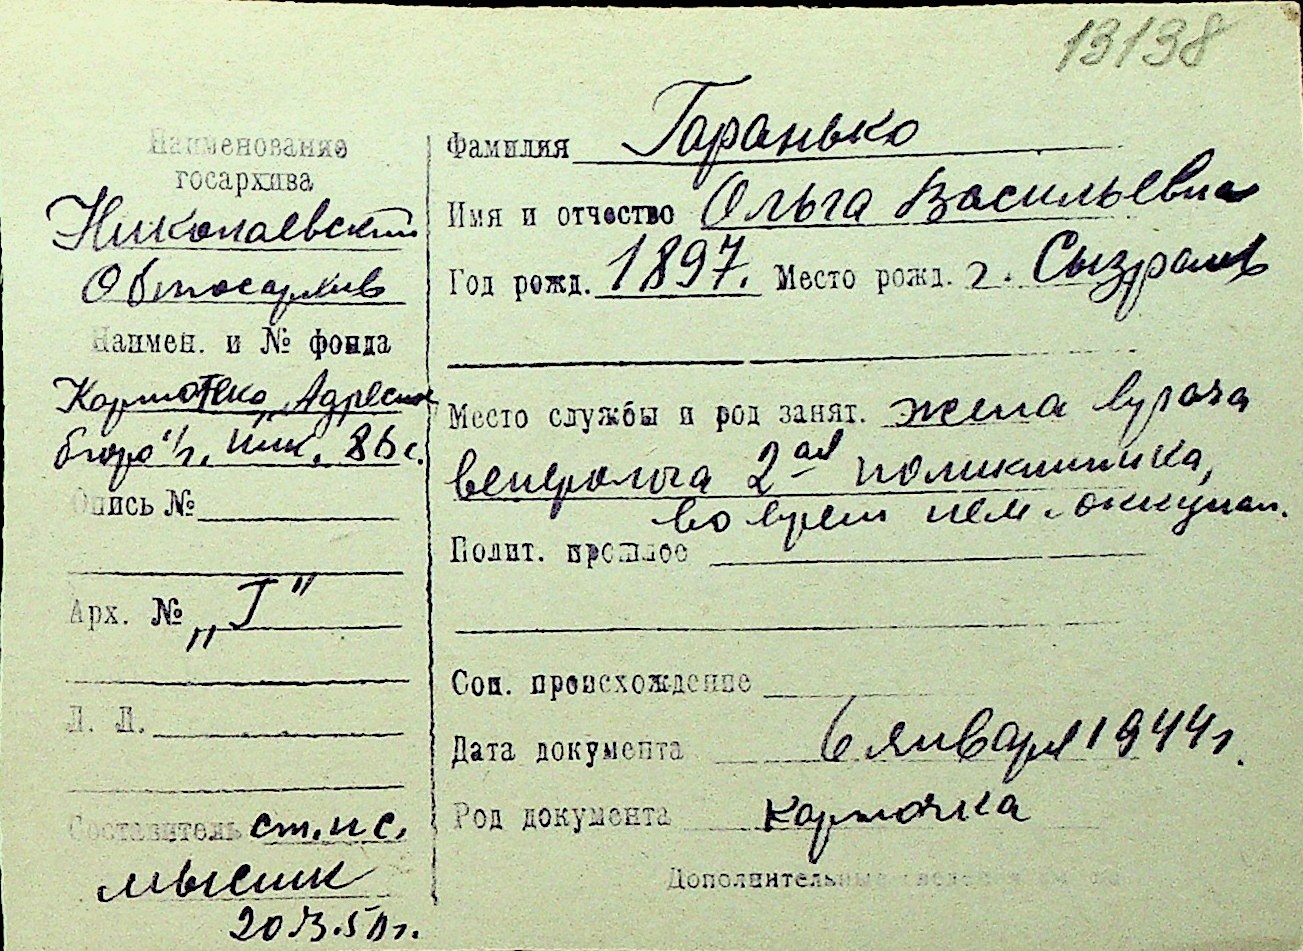 13138
Наименование
госархива
Николаевский
Облгосархив
Наимен. и № фонда
Картотека „Адресное
бюро" г. Ник.
Опись №
Арх. № „Г"
Л. Л.
Составитель ст. н. с.
Мысик
50 г.
Фамилия Гаранько
Имя и отчество Ольга Васильевна
Год рожд. 1897. Место рожд. г. Сызрань
Место службы и род занят. жена врача
венеролога 2ая поликлиника,
во врем нем. оккупац.
Полит. прошлое
Соц. происхождение
Дата документа 6 января 1944 г.
Род документа карточка
Дополнительные сведения на